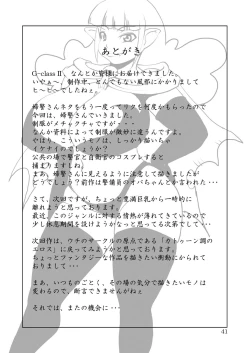 あとがき
G-class Ⅱ、なんとか皆様にお届けできました。
いやぁ〜、制作中、とんでもない風邪にかかりまして
ヒ〜ヒ〜でしたねぇ。
婦警さんネタをもう一度ってリクを何度かもらったので
今回は、婦警さんでいきました。
制服がメチャクチャですが・・・
なんか資料によって制服が微妙に違うんですよ。
やはり、こういうモノは、しっかり描いちゃ
イケナイのでしょうか?
公共の場で警官と自衛官のコスプレすると
捕まりますしね。
まあ、婦警さんに見えるように注意して描きましたが
どうでしょう?前作は警備員のオバちゃんとか言われた・・・
さて、次回ですが、ちょっと
離れようと思っております。
最近、このジャンルに対する情熱が薄れてきているので
少し休憩期間を設けようかなっと思ってる次第でして・・・
次回作は、ウチのサークルの原点である「カトゥーン調の
エロス」に戻ってみようかと思っております。
ちょっとファンタジーな作品を描きたい衝動にかられて
おりまして・・・
まあ、いつものごとく、その場の気分で描きたいモノは
変わるので、断言できませんがねぇ
それでは、またの機会に・・・
41